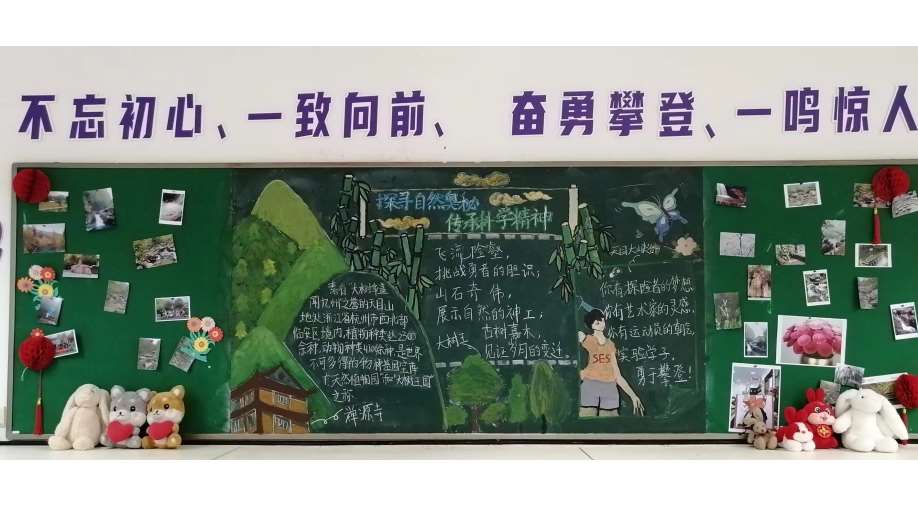 不忘初心、一致向前、 奋勇攀登、一鸣惊人
探寻自然奥秘
传承科学精神
素有"大树华盖
闻九州"之誉的天目山
地处浙江省杭州市西北部
临安区境内,植物种类达2500
余种,动物种类4100余种,是世界
不可多得的物种基因宝库
"天然植物园"和"大树王国"
之称
禅源寺
飞流险壑,
挑战勇者的胆识;
山石奇伟,
展示自然的神工;
古树嘉木,
见证岁月的变迁。
大树王
天目大峡谷
你有探险者的梦想
你有艺术家的灵感
你有运动员的
实验学子,
勇于攀登!
SES